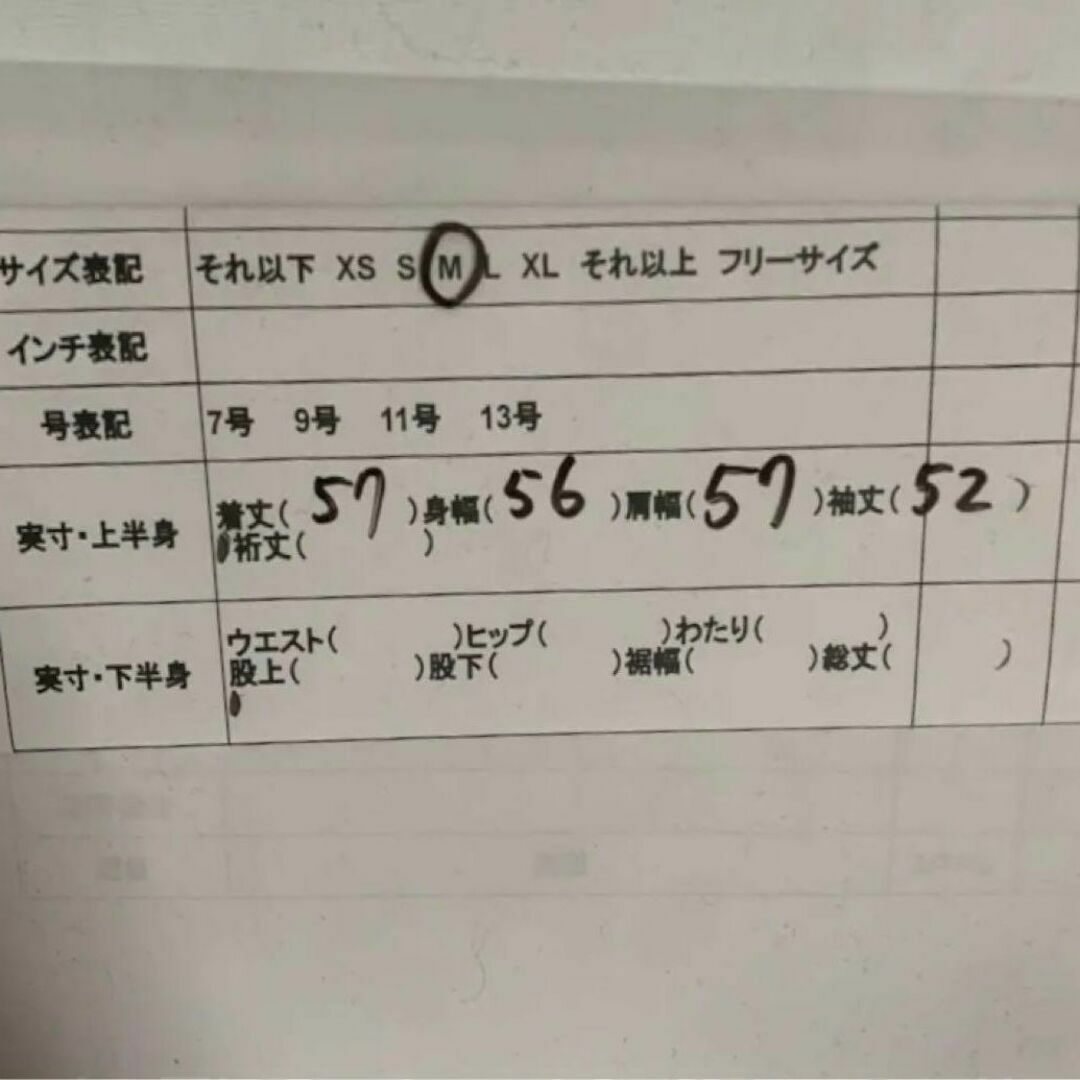 サイズ表記 それ以下 XS S M L XL それ以上 フリーサイズ
インチ表記
号表記 7号 9号 11号 13号
実寸・上半身 着丈( 57 )身幅( 56 )肩幅( 57 )袖丈( 52 )
裄丈( )
実寸・下半身 ウエスト( )ヒップ( )わたり( )
股上( )股下( )裾幅( )総丈( )